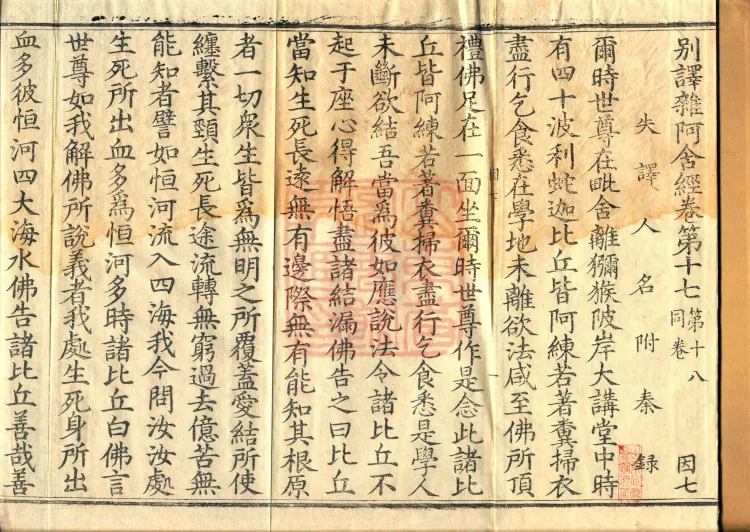 別譯雜阿舍經卷第十七 第十八同卷 因七
失譯人名附秦錄
爾時世尊在毗舍離獼猴陂岸大講堂中時
有四十波利蛇迦比丘皆阿練若著糞掃衣
盡行乞食悉在學地未離欲法咸至佛所頂
禮佛足在一面坐爾時世尊作是念此諸比
丘皆阿練若著糞掃衣盡行乞食悉是學人
未斷欲結吾當為彼如應說法令諸比丘不
起于座心得解悟盡諸結漏佛告之曰比丘
當知生死長遠無有邊際無有能知其根原
者一切眾生皆爲無明之所覆蓋愛結所使
纏繫其頸生死長途流轉無窮過去億苦無
能知者譬如恒河流入四海我今問汝汝處
生死所出血多爲恒河多時諸比丘白佛言
世尊如我解佛所說義者我處生死身所出
血多彼恒河四大海水佛告諸比丘善哉善